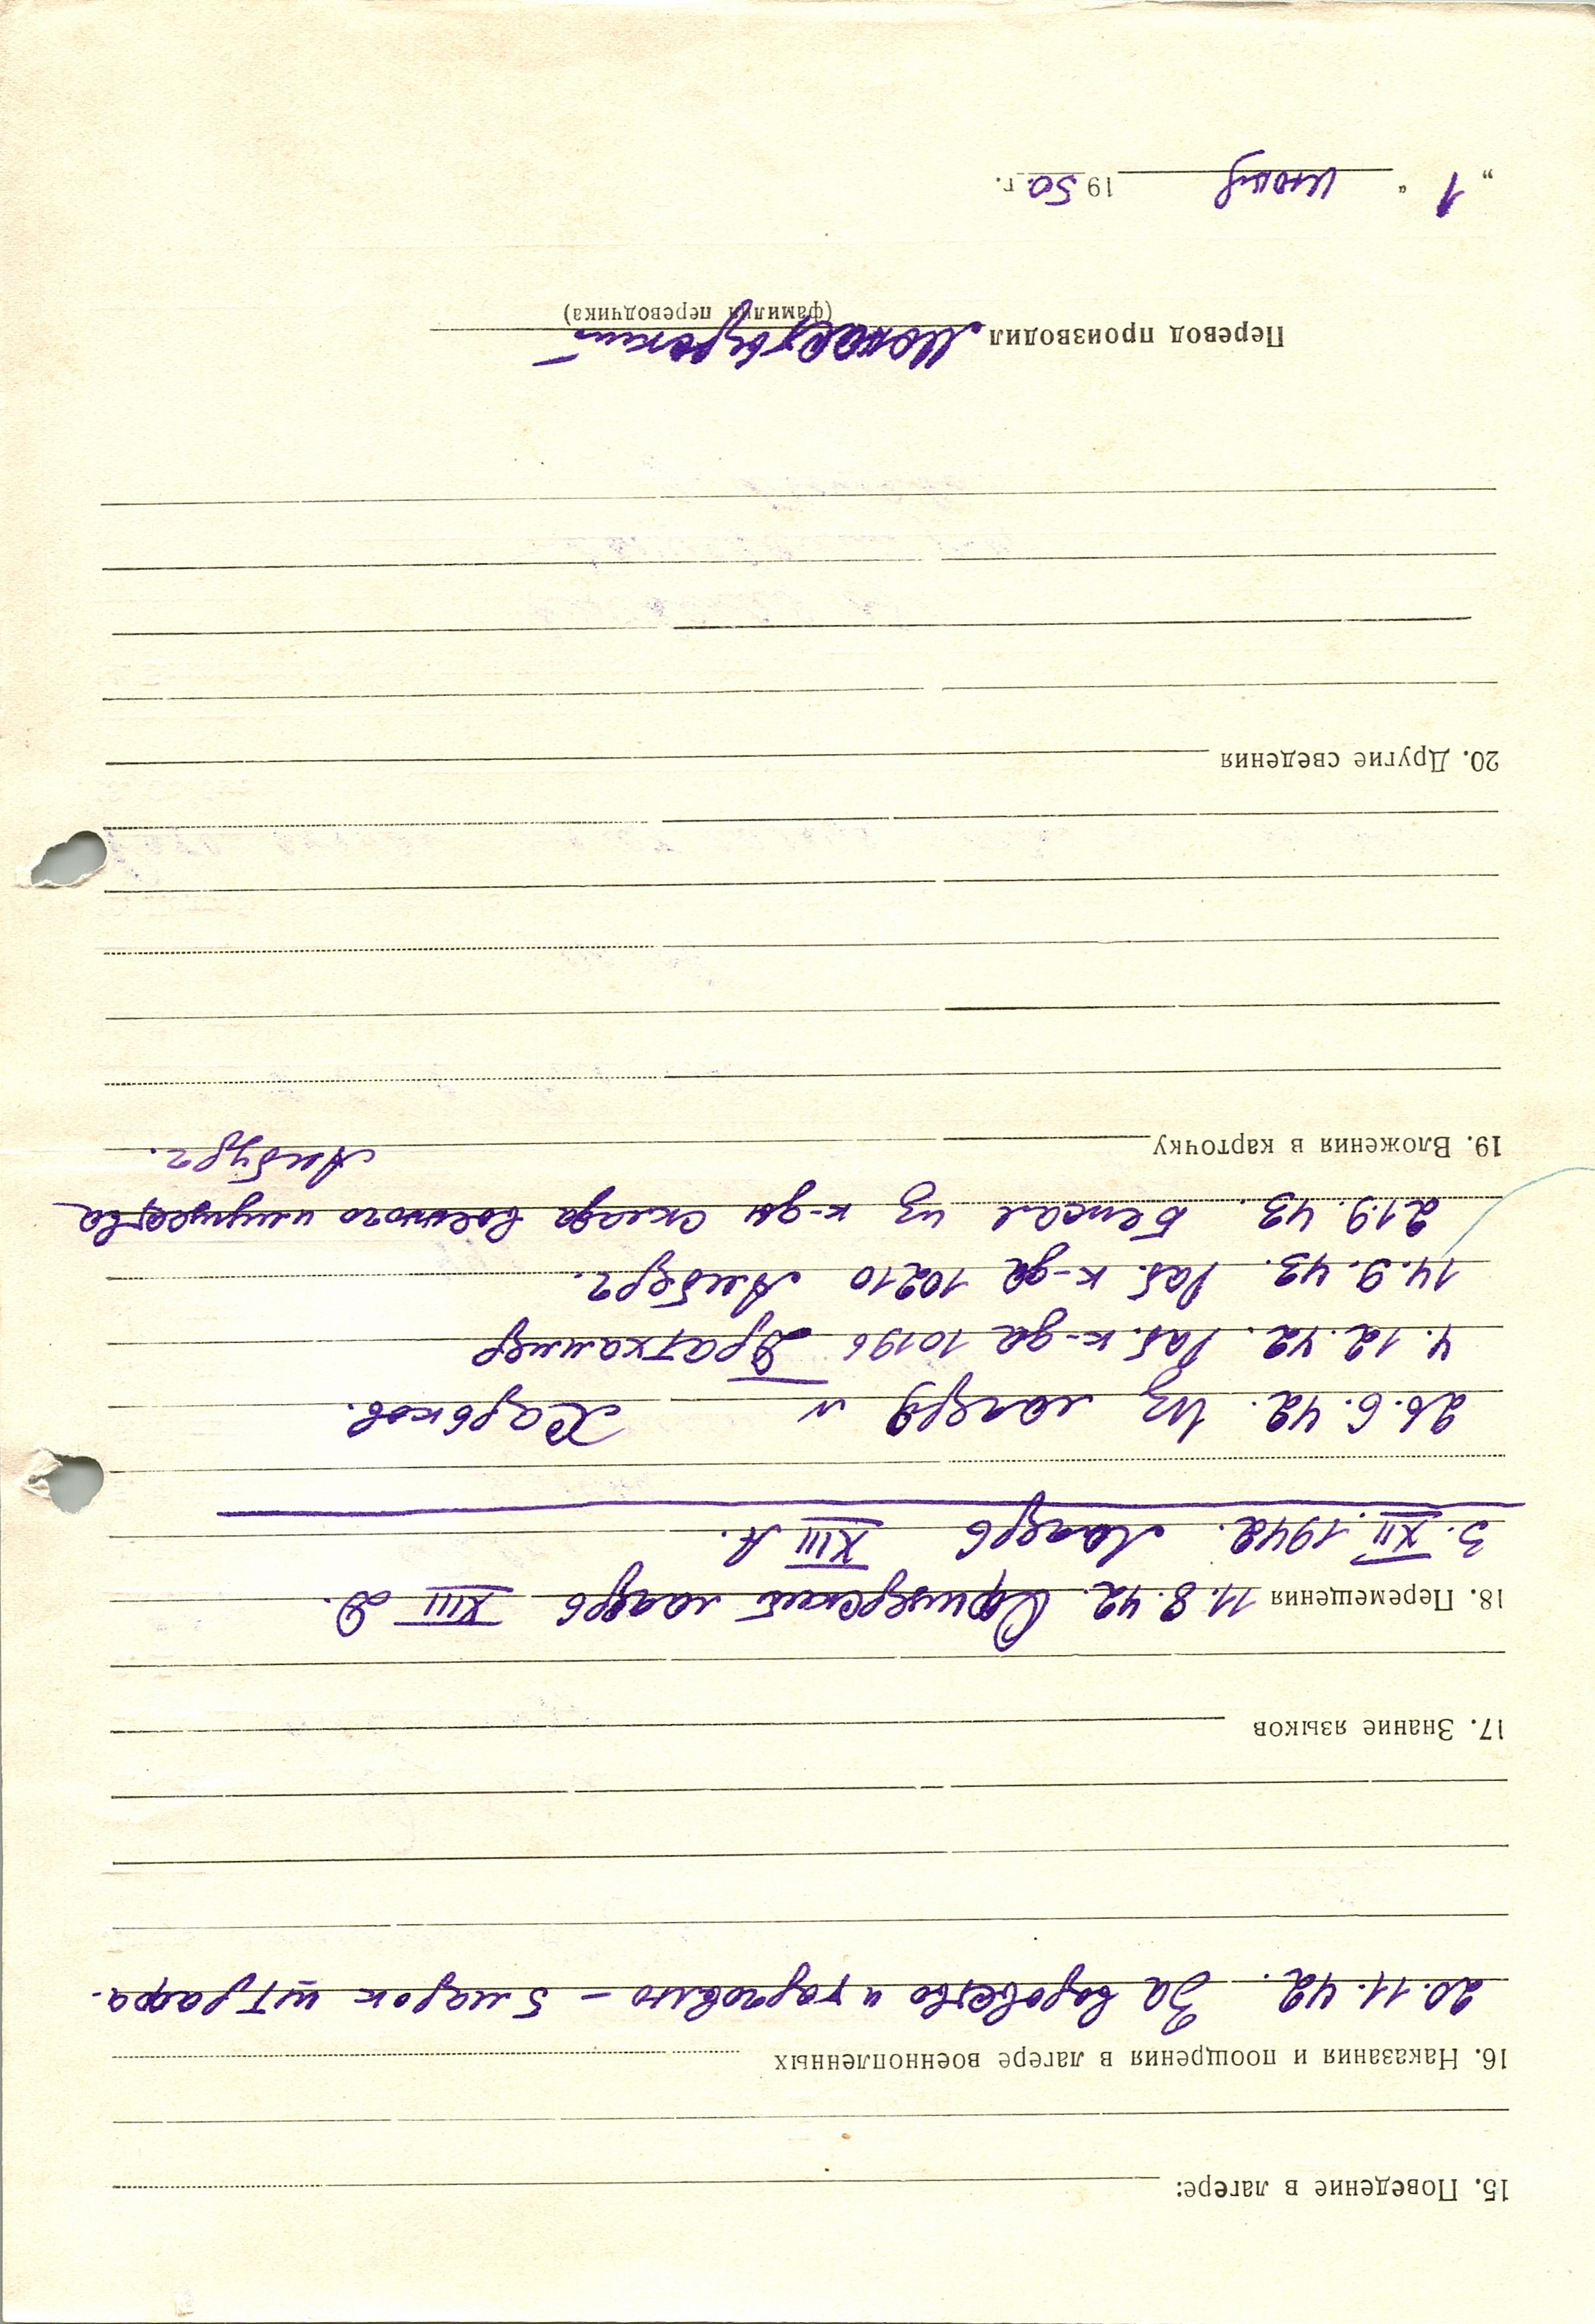 15. Поведение в лагере:
16. Наказания и поощрения в лагере военнопленных
20.11.42. За воровство и торговлю – 5 марок штрафа.
17. Знание языков
18. Перемещения 11.8.42. Офицерский лагерь XIII D.
3.XII.1942. Лагерь XIII A.
26.6.42. Из лагеря Харьков.
4.12.42. Раб. к-да 10196
14.9.43. Раб. к-да 10210
21.9.43. Бежал из к-ды склада военного имущества
19. Вложения в карточку
20. Другие сведения
Перевод производил Монастырский
(фамилия переводчика)
„1“ 1950 г.